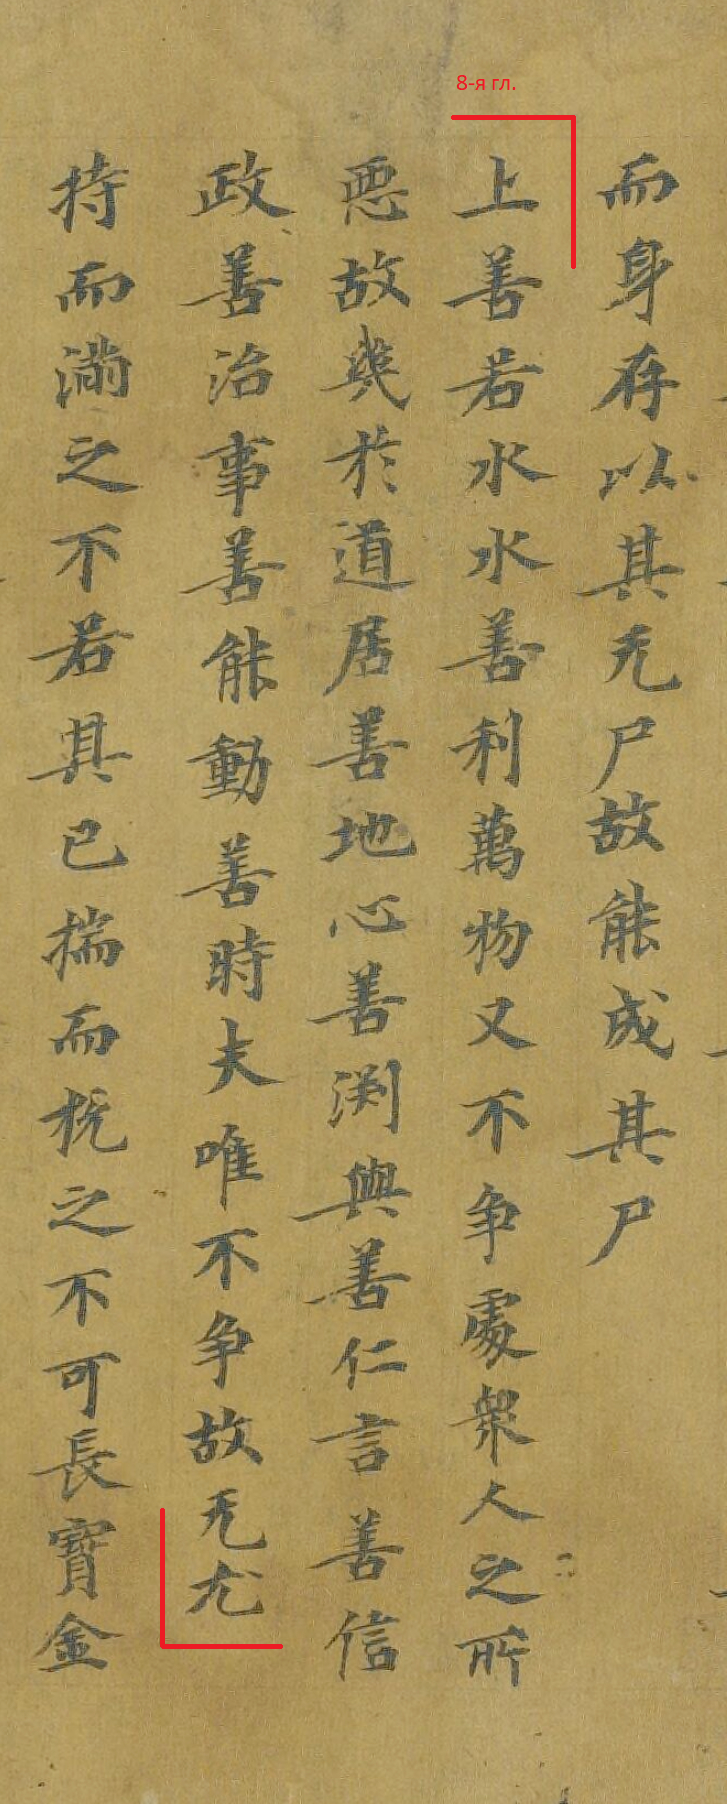 8-я гл.
而身存以其无尸故能成其尸
上善若水水善利萬物又不争處衆人之所
悪故幾於道居善地心善渕與善仁言善信
政善治事善能動善時夫唯不争故无尤
持而滿之不若其已揣而梲之不可長寳金